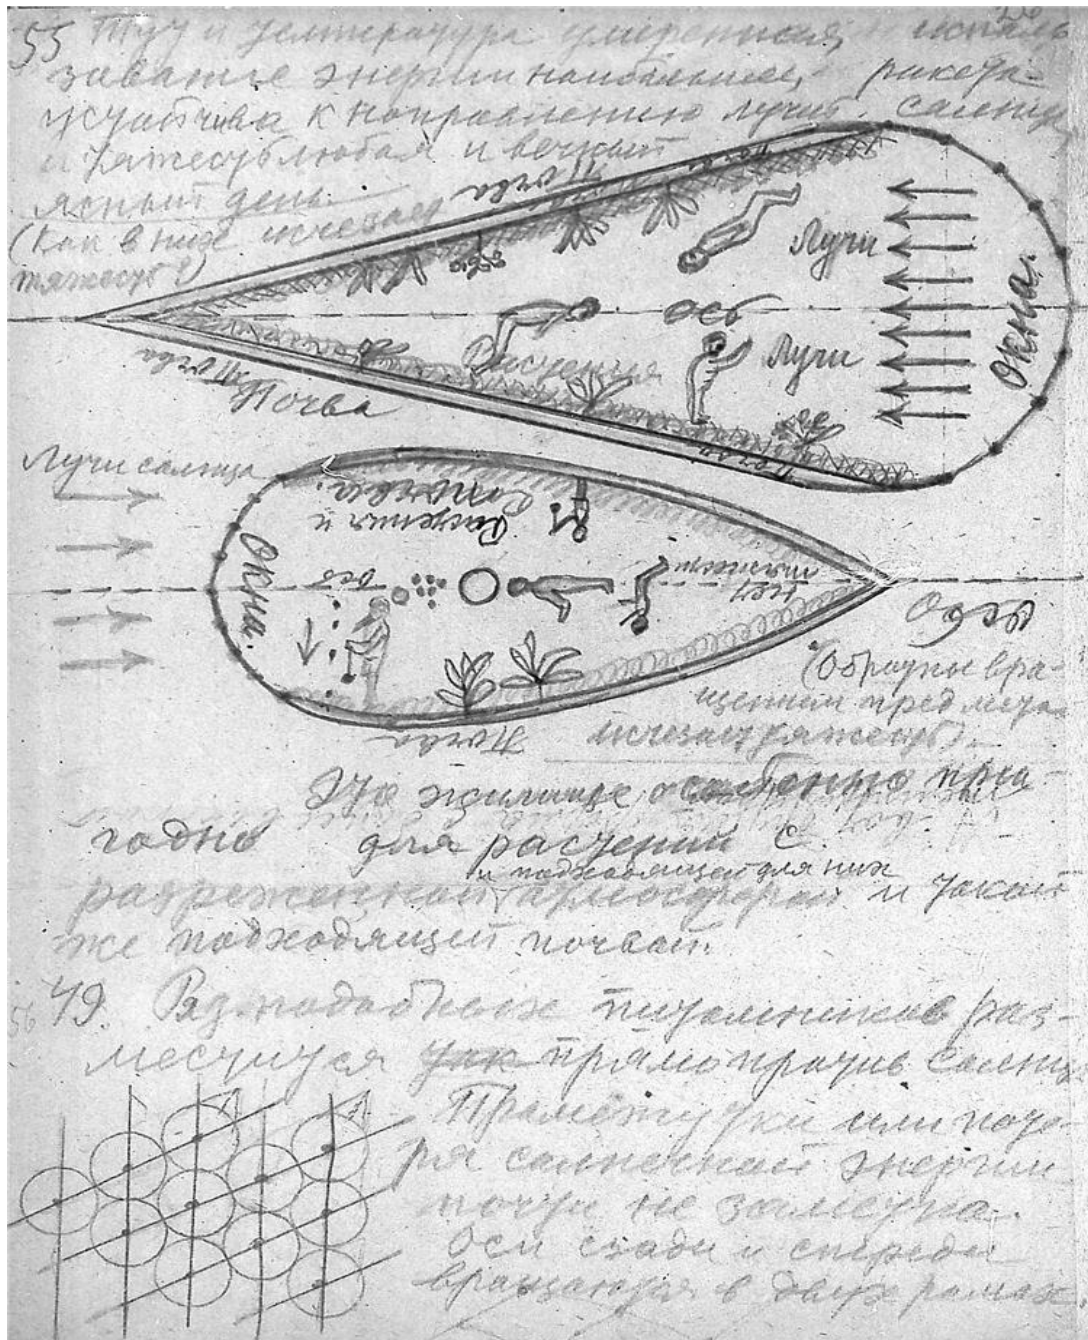 55 Тут и температура умеренная, и исполь-
зование энергии наибольшее, ракета
к направлению лучей солнца
и тяжесть любая и вечный
ясный день.
(Как в них исчезает
тяжесть?)
Почва
Почва
Лучи
Окна.
ось
Растения
Лучи
Почва
Почва
Почва
Лучи солнца
Растения и
Почва
Окна.
ось
нет
тяжести
Ось
(Обратным вра-
щением предмета
исчезает тяжесть).
Почва
Это жилище особенно при-
годно для растений с
и подходящей для них
разреженной атмосферой и такой
же подходящей почвой.
56 49. Вз подобных питомников раз-
местится так прямо против солнца
Промежутки или поте-
ря солнечной энергии
почти не заметна.
Оси сзади и спереди
вращаются в двух рамах.